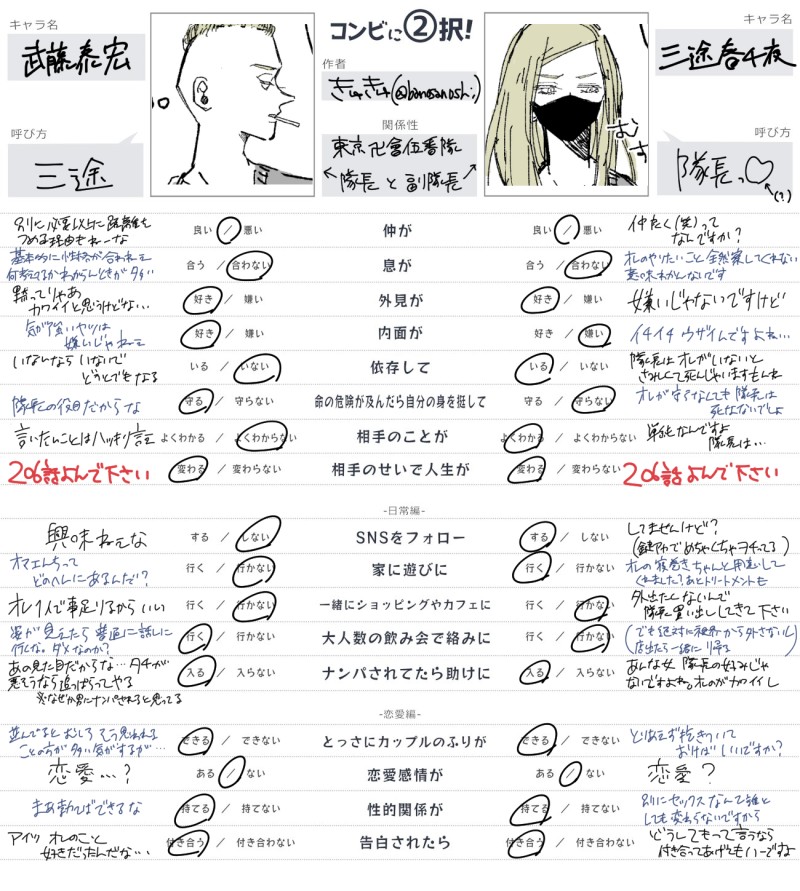 キャラ名
武藤泰宏
コンビに②択!
キャラ名
三途春千夜
作者
きゅきゅ
呼び方
三途
関係性
東京卍會伍番隊
隊長と副隊長
むす
呼び方
隊長っ♡
(?)
別に必要以上に距離を
つめる理由もねーな
良い / 悪い
仲が
良い / 悪い
仲たく(笑)って
なんですか?
基本的に性格が合わねェ
何考えてるかわからんときが多い
合う / 合わない
息が
合う / 合わない
オレのやりたいこと全然察してくれない
意味わかんないです
黙ってりゃあ
カワイイと思うけどな…
好き / 嫌い
外見が
好き / 嫌い
嫌いじゃないですけど
気が強いヤツは
嫌いじゃねェ
好き / 嫌い
内面が
好き / 嫌い
イチイチウザイんですよね…
いないならいないで
どうとでもなる
いる / いない
依存して
いる / いない
隊長はオレがいないと
さみしくて死んじゃいますもんね
隊長の役目だからな
守る / 守らない
命の危険が及んだら自分の身を挺して
守る / 守らない
オレが守らなくても隊長は
死なないでしょ
言いたいことはハッキリ言え
よくわかる / よくわからない
相手のことが
よくわかる / よくわからない
単純なんですよ
隊長は…
206話よんで下さい
変わる / 変わらない
相手のせいで人生が
変わる / 変わらない
206話よんで下さい
-日常編-
興味ねェな
する / しない
SNSをフォロー
する / しない
してませんけど?
(鍵アカでめちゃくちゃヲチってる)
オマエんちって
どのへんにあるんだ?
行く / 行かない
家に遊びに
行く / 行かない
オレの寝巻きちゃんと用意して
くれました?あとトリートメントも
オレ1人で事足りるからいい
行く / 行かない
一緒にショッピングやカフェに
行く / 行かない
外出たくないんで
隊長買い出ししてきて下さい
姿が見えたら普通に話しに
行くな。ダメなのか?
行く / 行かない
大人数の飲み会で絡みに
行く / 行かない
(でも絶対に視界から外さないし
店出たら一緒に帰る)
あの見た目だからな…タチが
悪そうなら追っぱらってやる
※なぜか男にナンパされてると思ってる
入る / 入らない
ナンパされてたら助けに
入る / 入らない
あんな女隊長の好みじゃ
ないですよね。オレのがカワイイし
-恋愛編-
並んでるとむしろそう思われる
ことの方が多い気がするが…
できる / できない
とっさにカップルのふりが
できる / できない
とりあえず抱きついて
おけばいいですか?
恋愛…?
ある / ない
恋愛感情が
ある / ない
恋愛?
まあ勃てばできるな
持てる / 持てない
性的関係が
持てる / 持てない
別にセックスなんて誰と
しても変わらないですから
アイツオレのこと
好きだったんだな…
付き合う / 付き合わない
告白されたら
付き合う / 付き合わない
どうしてもって言うなら
付き合ってあげてもいーですよ